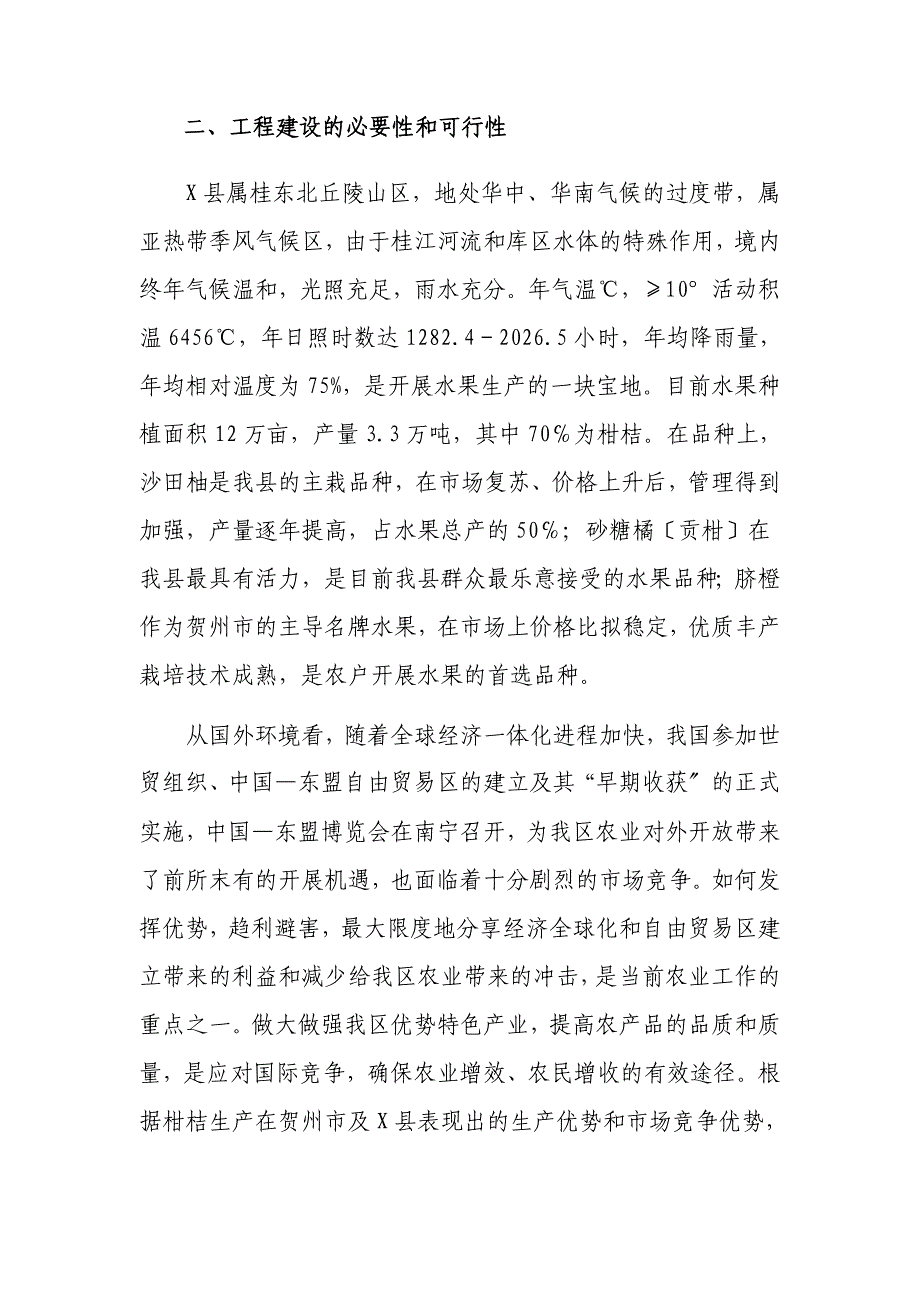 二、工程建设的必要性和可行性
X县属桂东北丘陵山区，地处华中、华南气候的过度带，属
亚热带季风气候区，由于桂江河流和库区水体的特殊作用，境内
终年气候温和，光照充足，雨水充分。年气温℃，≥10°活动积
温6456℃，年日照时数达1282.4-2026.5小时，年均降雨量，
年均相对温度为75%，是开展水果生产的一块宝地。目前水果种
植面积12万亩，产量3.3万吨，其中70℅为柑桔。在品种上，
沙田柚是我县的主栽品种，在市场复苏、价格上升后，管理得到
加强，产量逐年提高，占水果总产的50℅；砂糖橘〔贡柑〕在
我县最具有活力，是目前我县群众最乐意接受的水果品种；脐橙
作为贺州市的主导名牌水果，在市场上价格比拟稳定，优质丰产
栽培技术成熟，是农户开展水果的首选品种。
从国外环境看，随着全球经济一体化进程加快，我国参加世
贸组织、中国—东盟自由贸易区的建立及其“早期收获〞的正式
实施，中国—东盟博览会在南宁召开，为我区农业对外开放带来
了前所末有的开展机遇，也面临着十分剧烈的市场竞争。如何发
挥优势，趋利避害，最大限度地分享经济全球化和自由贸易区建
立带来的利益和减少给我区农业带来的冲击，是当前农业工作的
重点之一。做大做强我区优势特色产业，提高农产品的品质和质
量，是应对国际竞争，确保农业增效、农民增收的有效途径。根
据柑桔生产在贺州市及X县表现出的生产优势和市场竞争优势，